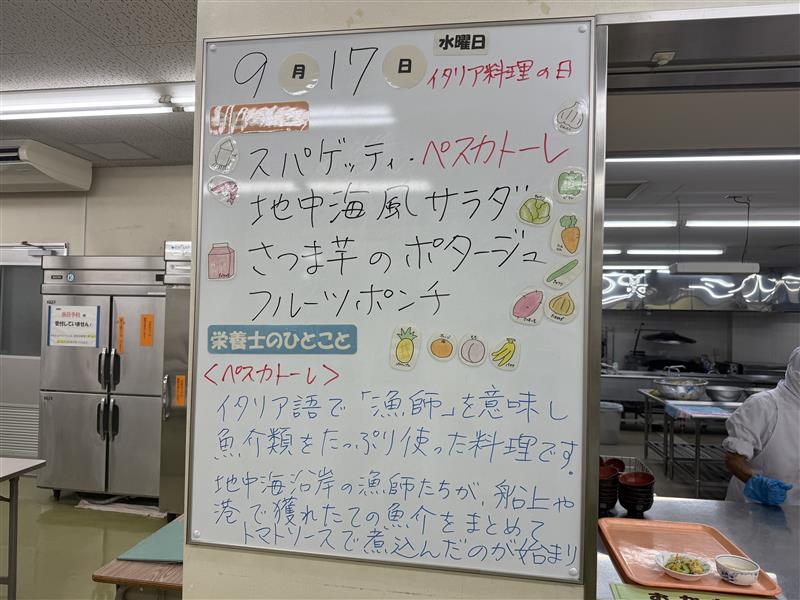 9月17日 水曜日
イタリア料理の日
スパゲッティ・ペスカトーレ
地中海風サラダ
さつま芋のポタージュ
フルーツポンチ
栄養士のひとこと
<ペスカトーレ>
イタリア語で「漁師」を意味し
魚介類をたっぷり使った料理です.
地中海沿岸の漁師たちが、船上や
港で獲れたての魚介をまとめて
トマトソースで煮込んだのが始まり
受付していません!